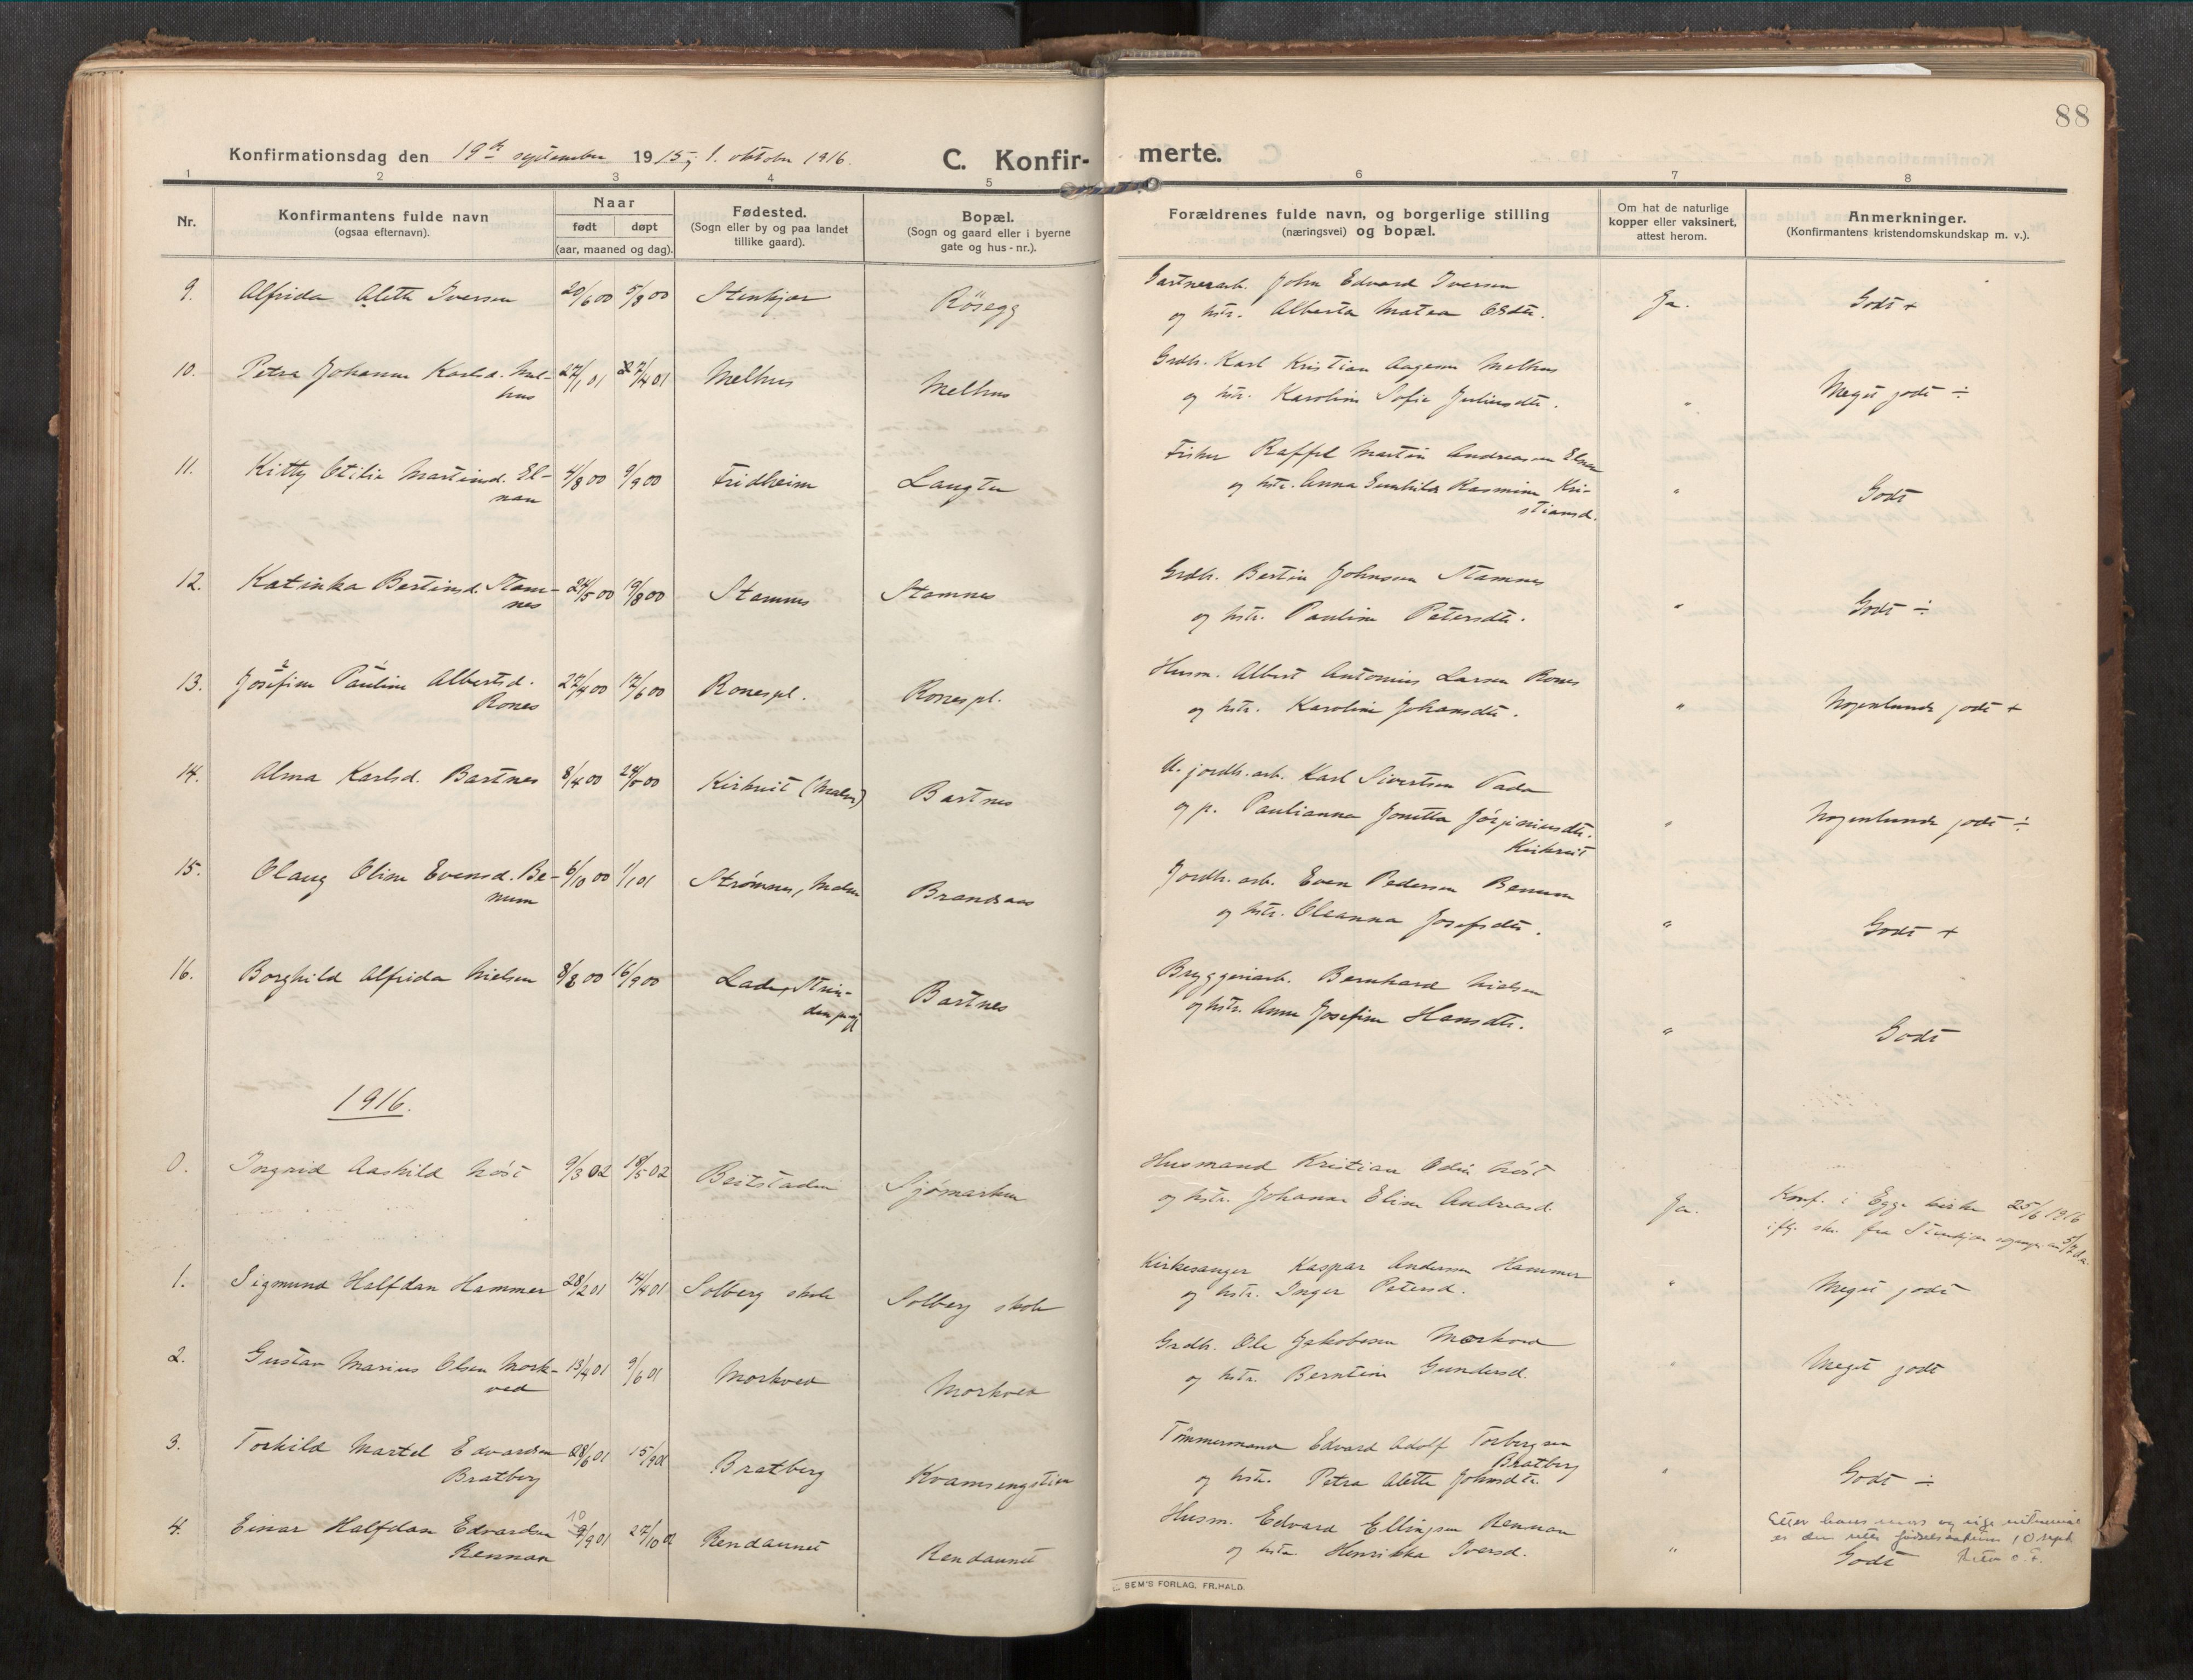 88
Konfirmationsdag den 19de september 1915; 1. oktober 1916.
C. Konfir-
merte.
1 2 3 4 5 6 7 8
Nr.
Konfirmantens fulde navn
(ogsaa efternavn).
Naar
født døpt
(aar, maaned og dag).
Fødested.
(Sogn eller by og paa landet
tillike gaard).
Bopæl.
(Sogn og gaard eller i byerne
gate og hus-nr.).
Forældrenes fulde navn, og borgerlige stilling
(næringsvei) og bopæl.
Om hat de naturlige
kopper eller vaksinert,
attest herom.
Anmerkninger.
(Konfirmantens kristendomskundskap m. v.).
9. Alfrida Aletta Iversen 20/6 00 5/8 00 Stenkjær Rösegg
Gartnerarb. John Edvard Iversen
og hstr. Alberta Matea Olsdtr. Ja. Godt +
10. Petra Johanne Karlsd. Mel-
hus 27/1 01 27/4 01 Melhus Melhus
Grdbr. Karl Kristian Aagesen Melhus
og hstr. Karoline Sofie Juliusdtr. " Meget godt ÷
11. Kitty Otilie Martinsd. El-
nan 4/8 00 9/9 00 Fridheim Langtu
Fisker Raffel Martin Andreassen Elnan
og hstr. Anna Gunhilda Rasmine Kri-
stiansd. " Godt
12. Katinka Bertinsd. Stam-
nes 24/5 00 19/8 00 Stamnes Stamnes
Grdbr. Bertin Johnsen Stamnes
og hstr. Pauline Petersdtr. " Godt ÷
13. Josefine Pauline Albertsd.
Rones 27/4 00 17/6 00 Ronespl. Ronespl.
Husm. Albert Antonius Larsen Rones
og hstr. Karoline Johansdtr. " Nogenlunde godt +
14. Alma Karlsd. Bartnes 8/4 00 24/5 00 Kirkreit (Malm) Bartnes
U. jordbr.arb. Karl Sivertsen Vada
og p. Paulianna Jonetta Jörginusdtr.
Kirkreit " Nogenlunde godt ÷
15. Olaug Oline Evensd. Be-
num 6/10 00 1/1 01 Strømnes, Malm Brandsaas
Jordbr. arb. Even Pedersen Benum
og hstr. Oleanna Josefsdtr. " Godt +
16. Borghild Alfrida Nielsen 8/8 00 16/9 00 Lade, Strin-
den pregj Bartnes
Bryggeriarb. Bernhard Nielsen
og hstr. Anna Josefine Hansdtr. " Godt
1916.
0. Ingrid Aashild Nöst 9/3 02 18/5 02 Beitstaden Sjömarken
Husmand Kristian Odin Nöst
og hstr. Johanna Eline Andreasd. Ja. Konf. i Egge kirke 25/6 1916
ifg. skr. fra Stenkjær
1. Sigmund Halfdan Hammer 28/2 01 14/4 01 Solberg skole Solberg skole
Kirkesanger Kaspar Andersen Hammer
og hstr. Inger Petersd. " Meget godt
2. Gustav Marius Olsen Mork-
ved 13/4 01 9/6 01 Morkved Morkved
Grdbr. Ole Jakobsen Morkved
og hstr. Berntine Gundersd. " Meget godt
3. Torkild Martel Edvardsen
Bratberg 28/6 01 15/9 01 Bratberg Kvamsengstien
Tömmermand Edvard Adolf Torbergsen
Bratberg
og hstr. Petra Aletta Johnsdtr. " Godt ÷
4. Einar Halfdan Edvardsen
Rennan 10 9/9 01 27/10 01 Rendaunet Rendaunet
Husm. Edvard Ellingsen Rennan
og hstr. Henrikka Iversd. "
Etter hans mors og
er den rette fødselsdatum 10 sept.
Godt
SEM'S FORLAG, FR.HALD.